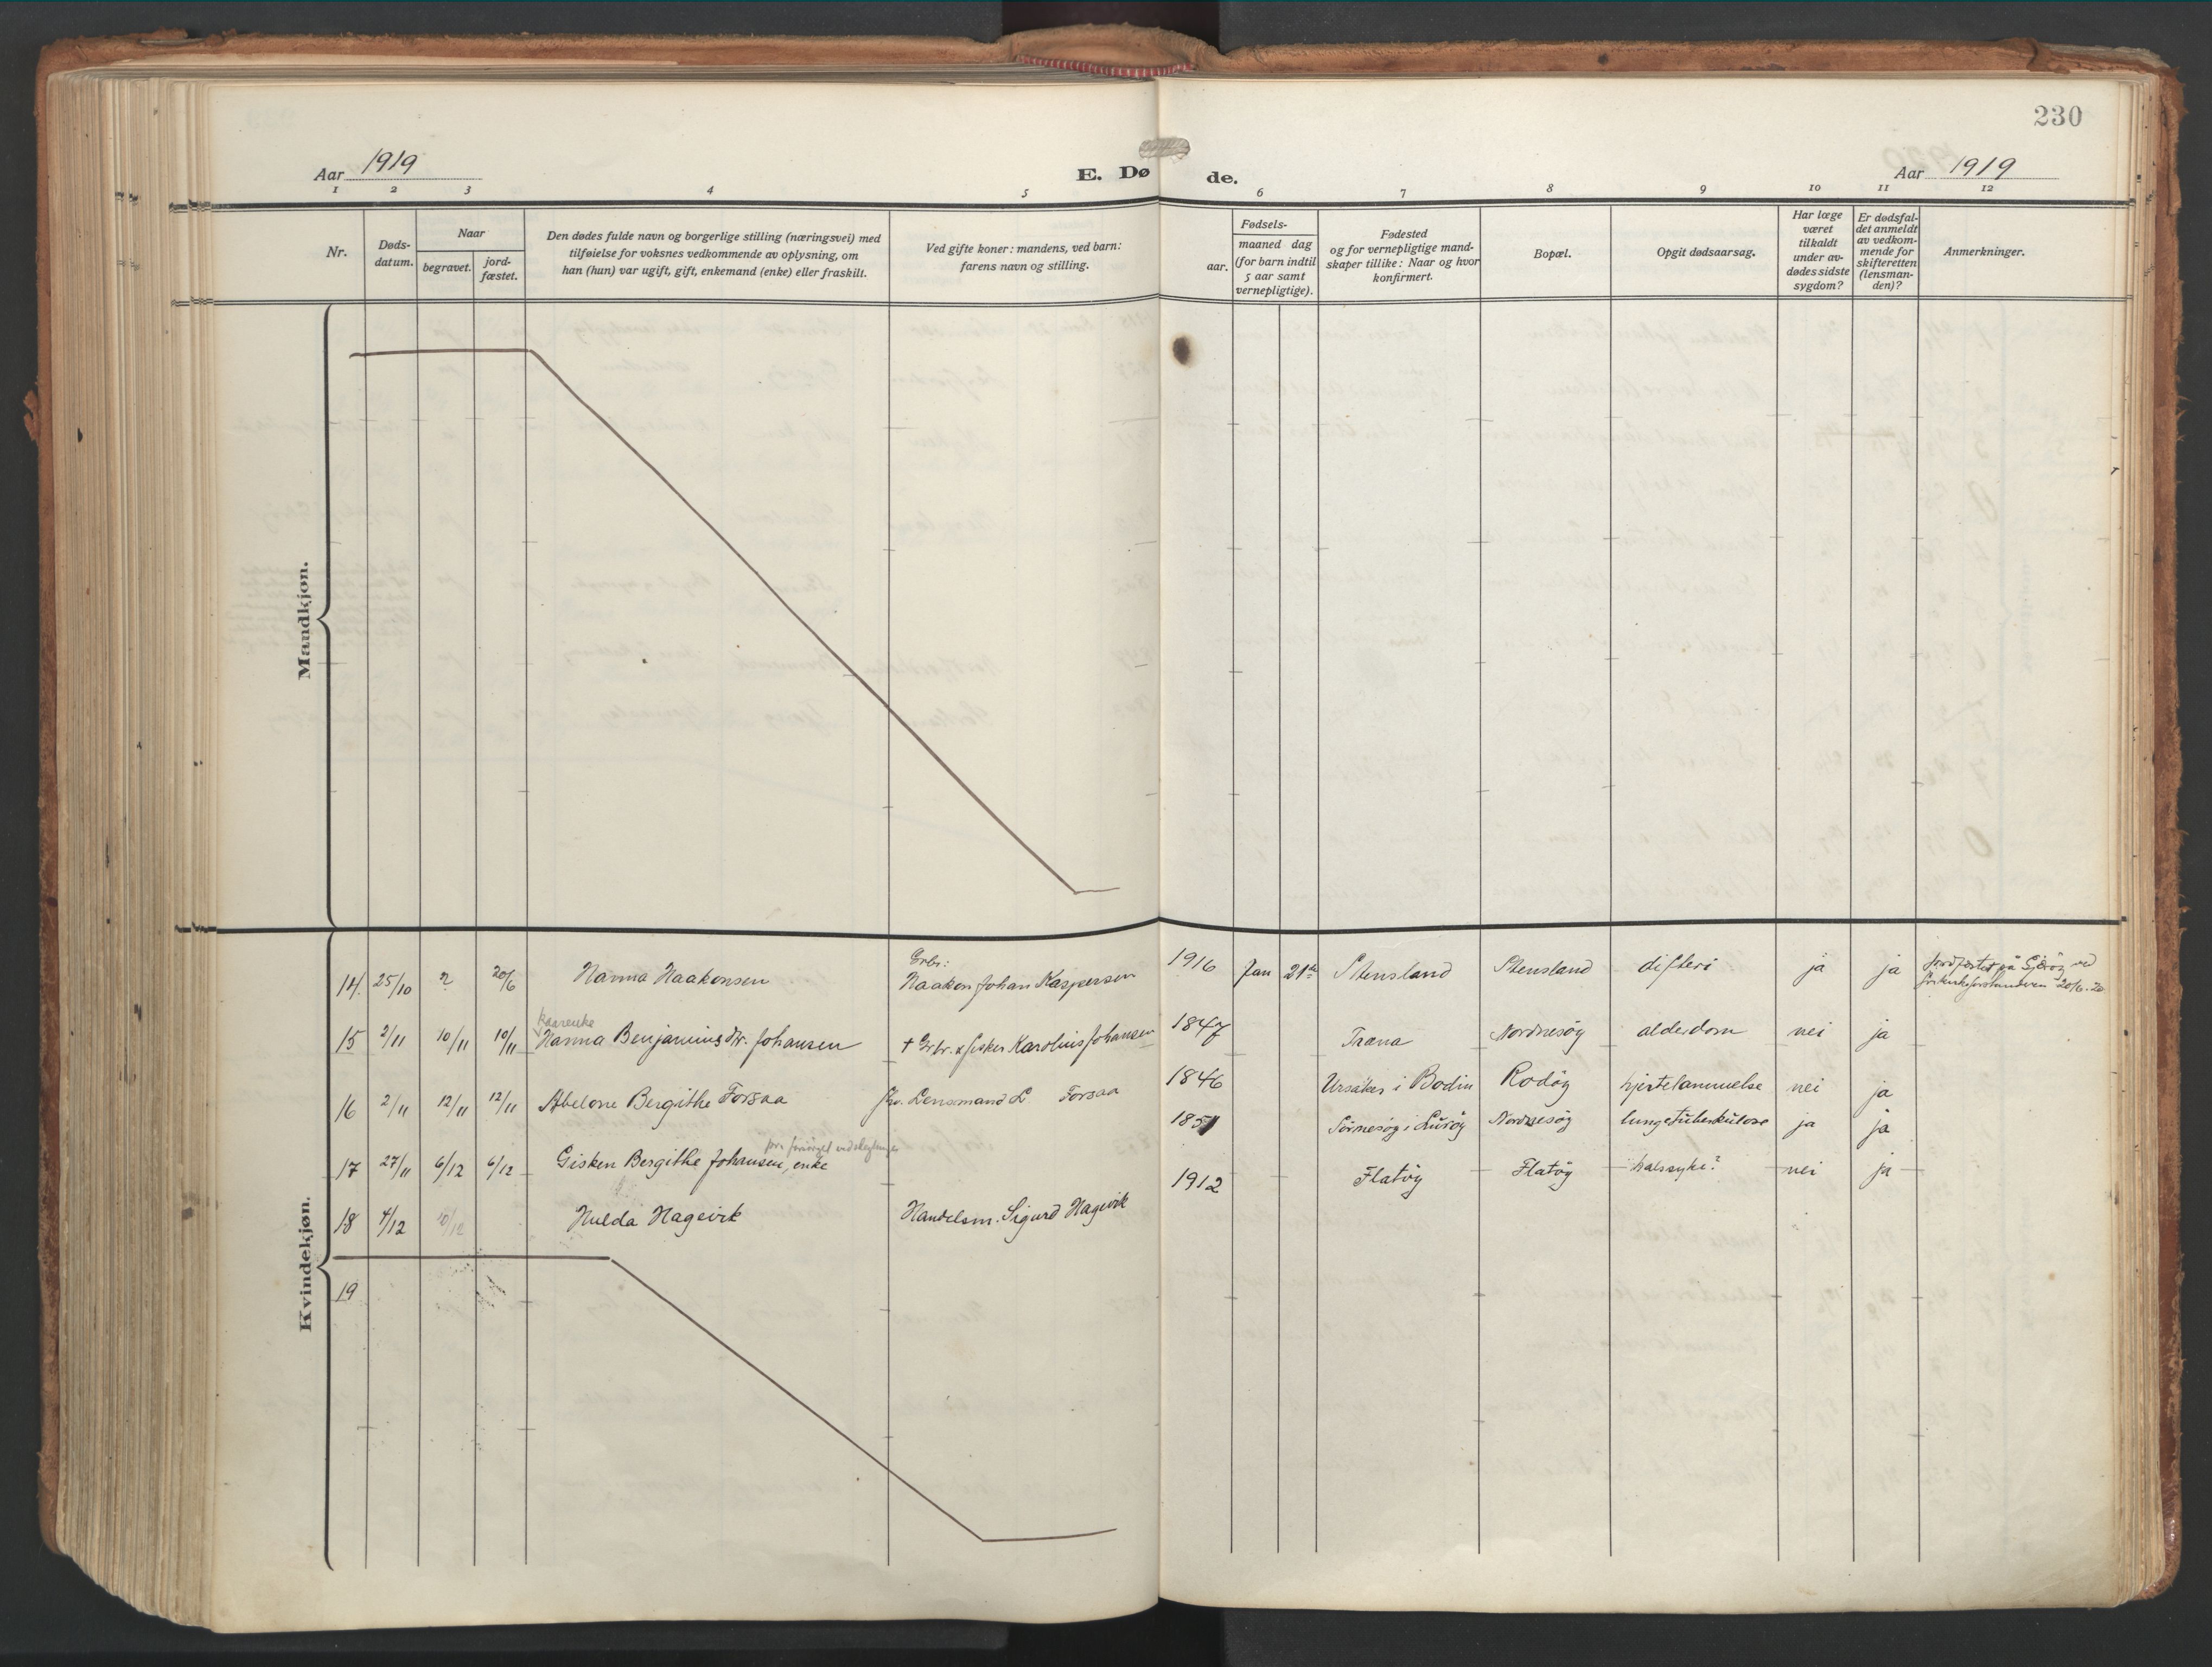 230
Aar 1919
E. Døde.
Aar 1919
1 2 3 4 5 6 7 8 9 10 11 12
Nr.
Døds-datum.
Naar
begravet.
jord-fæstet.
Den dødes fulde navn og borgerlige stilling (næringsvei) med
tilføielse for voksnes vedkommende av oplysning, om
han (hun) var ugift, gift, enkemand (enke) eller fraskilt.
Ved gifte koner: mandens, ved barn:
farens navn og stilling.
Fødsels-
aar.
maaned dag
(for barn indtil
5 aar samt
vernepligtige).
Fødested
og for vernepligtige mand-
skaper tillike: Naar og hvor
konfirmert.
Bopæl.
Opgit dødsaarsag.
Har læge
været
tilkaldt
under av-
dødes sidste
sygdom?
Er dødsfal-
det anmeldt
av vedkom-
mende for
skifteretten
(lensman-
den)?
Anmerkninger.
Mandkjøn.
Kvindekjøn.
14. 25/10 ? 20/6 Hanna Haakonsen Grbr: Haakon Johan Kaspersen 1916 Jan 21de Stensland Stensland difteri ja ja jordfæstet på Gjerøy ved 20/6-20
kaarenke
15 2/11 10/11 10/11 Hanna Benjaminsdtr. Johansen + Grbr. & fisker Karolius Johansen 1847 Træna Nordnesøy alderdom nei ja
16 2/11 12/11 12/11 Abelone Bergithe Forsaa Lensmand L Forsaa 1846 Ursåker i Bodin Rodøy hjertelammelse nei ja
17 27/11 6/12 6/12 Gisken Bergithe Johansen, enke 1851 Sörnesøy i Lurøy Nordnesøy lungetuberkulose ja ja
18 4/12 10/12 Hulda Hagevik Handelsm. Sigurd Hagevik 1912 Flatøy Flatøy halssyke? nei ja
19